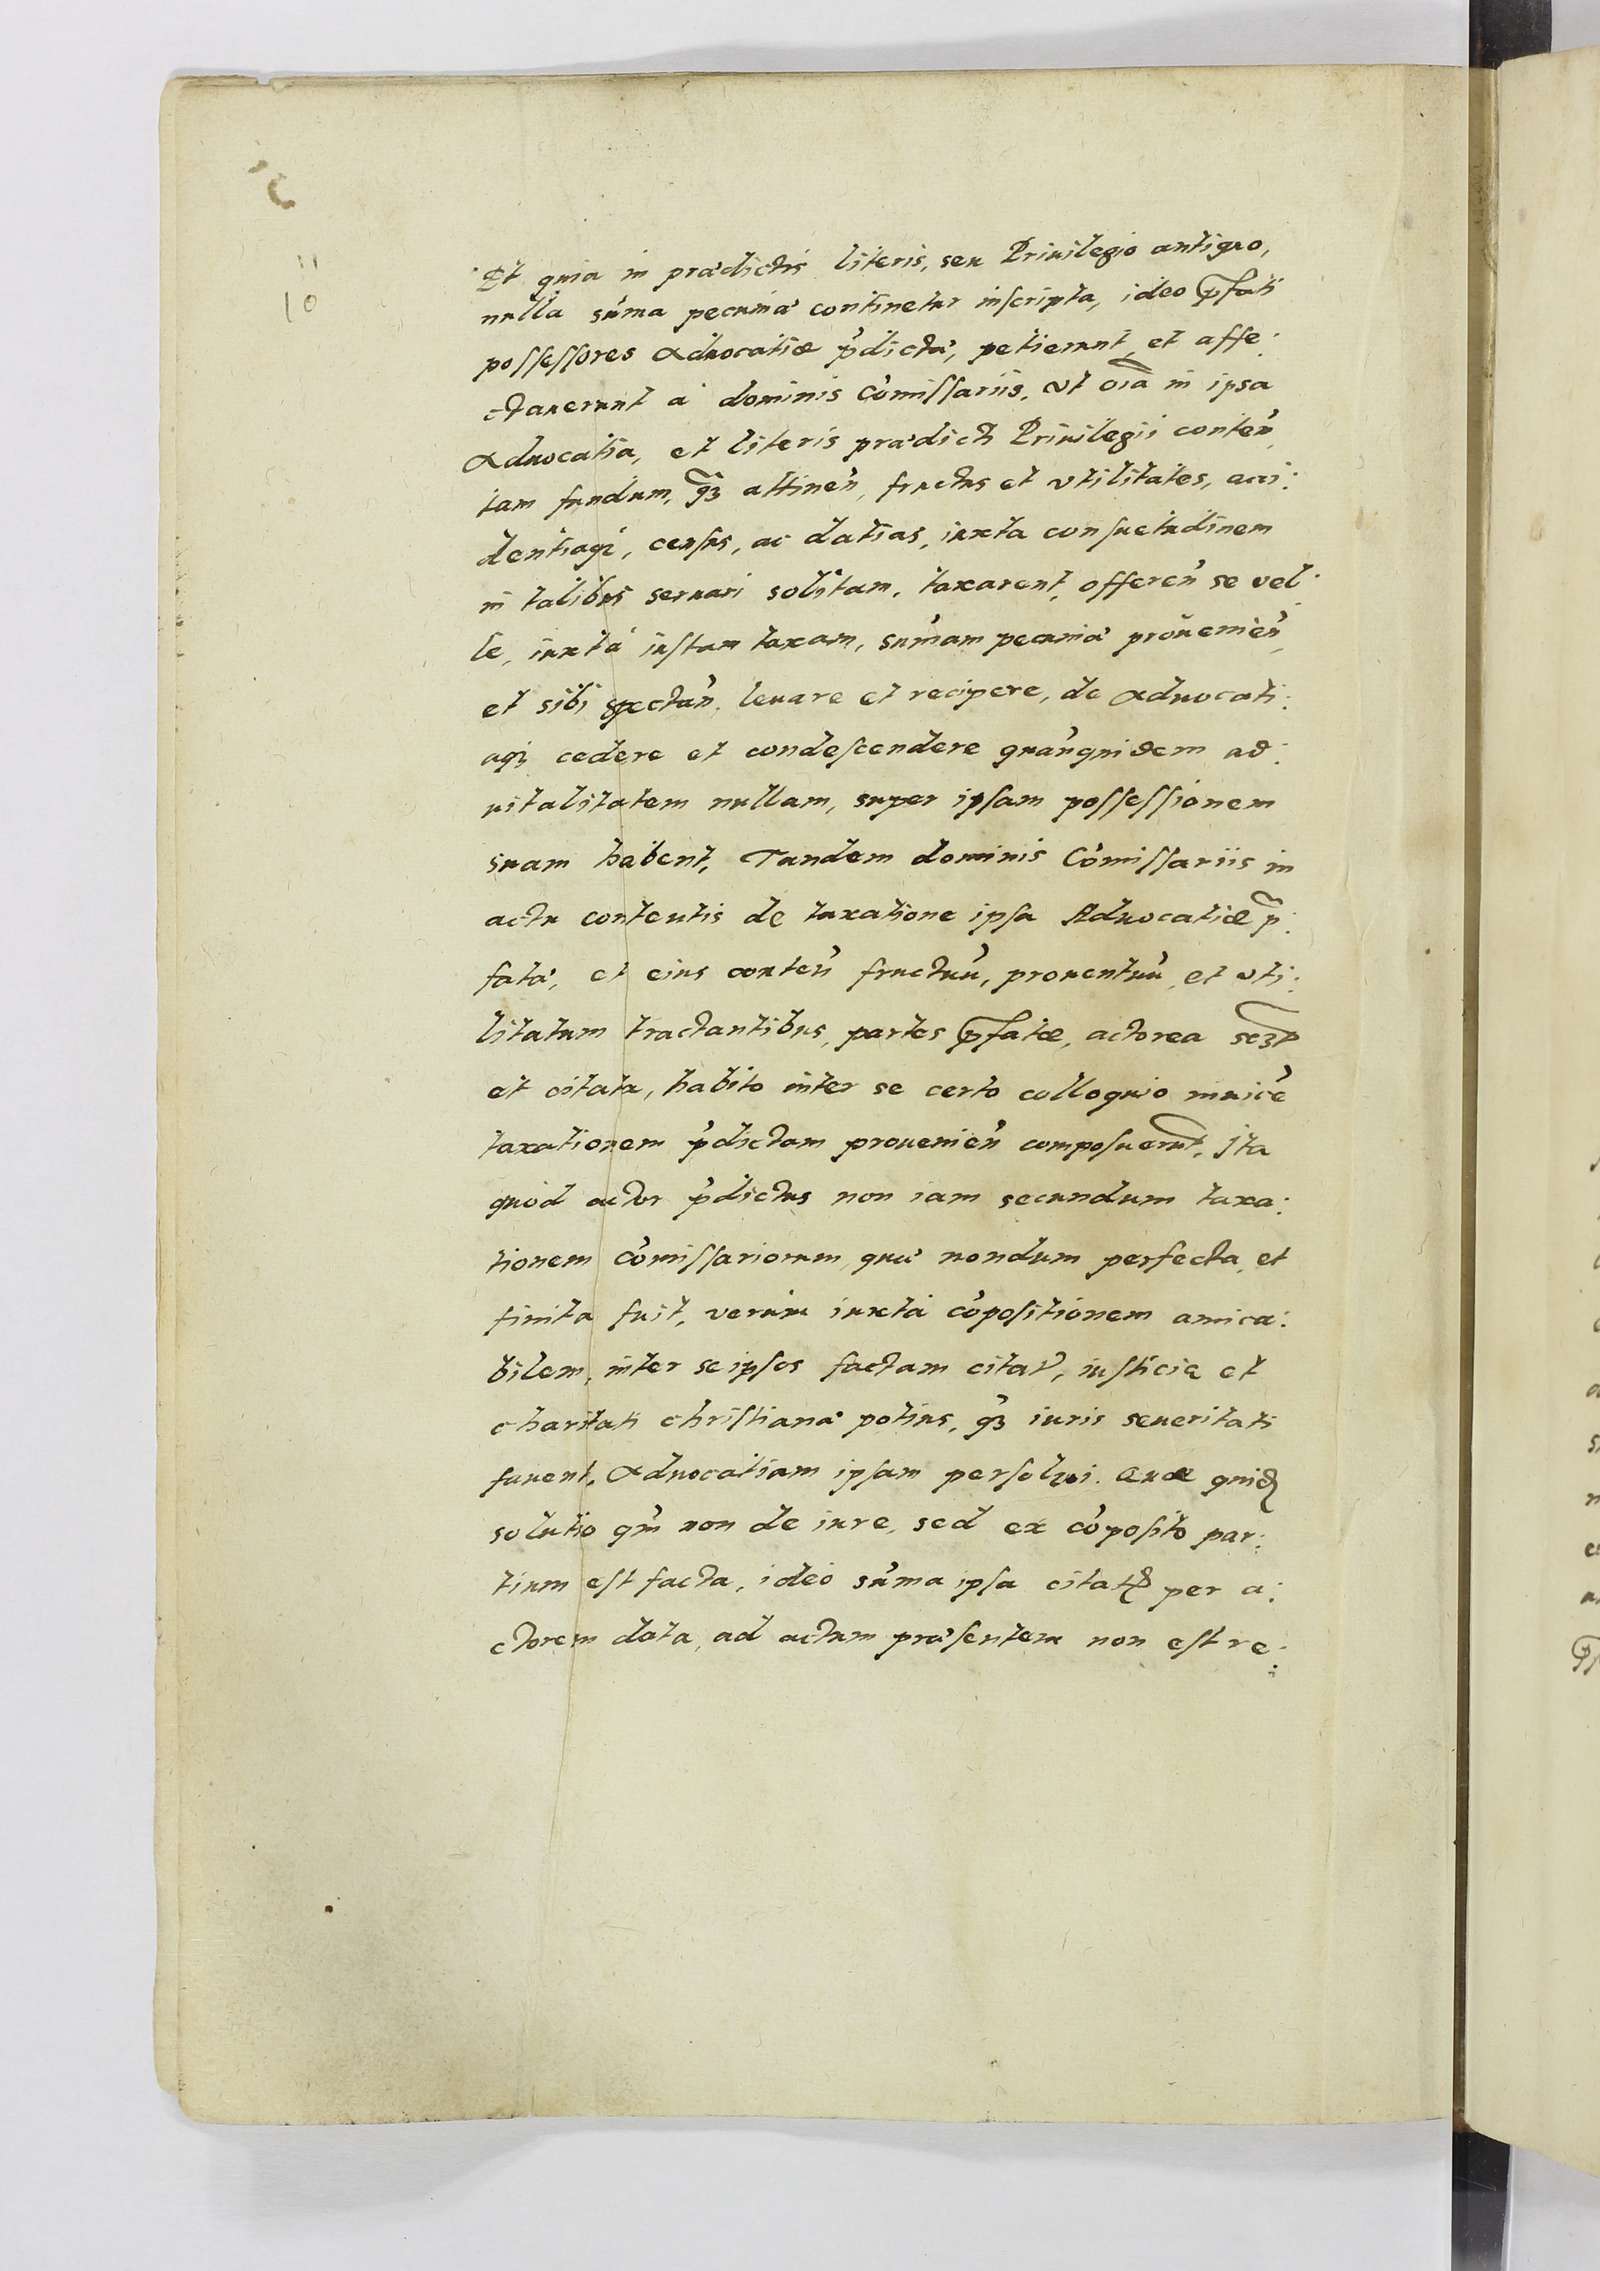 11
10
Et quia in prædictis literis, seu Priuilegio antiquo,
nulla sum̃a pecuniæ continetur inscripta, ideo p̃fati
possessores Aduocatiæ p̃dictæ, petierunt, et affe:
ctauerunt à dominis Com̃issariis, vt oĩa in ipsa
Aduocatia, et literis prædicti Priuilegii conteñ,
tam fundum, q̃ʒ attineñ, fructus et vtilitates, acci:
dentiaqʒ, census, ac datias, iuxta consuetudinem
in talibus seruari solitam, taxarent, offereñ se vel:
le, iuxta iustam taxam, sum̃am pecuniæ proueniеñ,
et sibi spectañ, leuare et recipere, de Aduocati:
aqʒ cedere et condescendere quañquidem ad:
uitalitatem nullam, super ipsam possessionem
suam habent, Tandem dominis Com̃issariis in
actu contentis de taxatione ipsa Aduocatiæ p̃:
fatæ, et eius conteñ fructuũ, prouentuũ, et vti:
litatum tractantibus, partes p̃fatæ, actorea
et citata, habito inter se certo colloquio inuicẽ
taxationem p̃dictam prouenieñ composuerunt, Ita
quòd actor p̃dictus non iam secundum taxa:
tionem Com̃issariorum, quæ nondum perfecta, et
finita fuit, verùm iuxta cõpositionem amica:
bilem, inter se ipsos factam citat, iusticiæ et
charitati christianæ potius, q̃ʒ iuris seueritati
fauent, Aduocatiam ipsam persolui. Quæ quid
solutio qm̃ non de iure, sed ex cõposito par:
tium est facta, ideò sum̃a ipsa citat per a:
ctorem data, ad actum præsentem non est re: